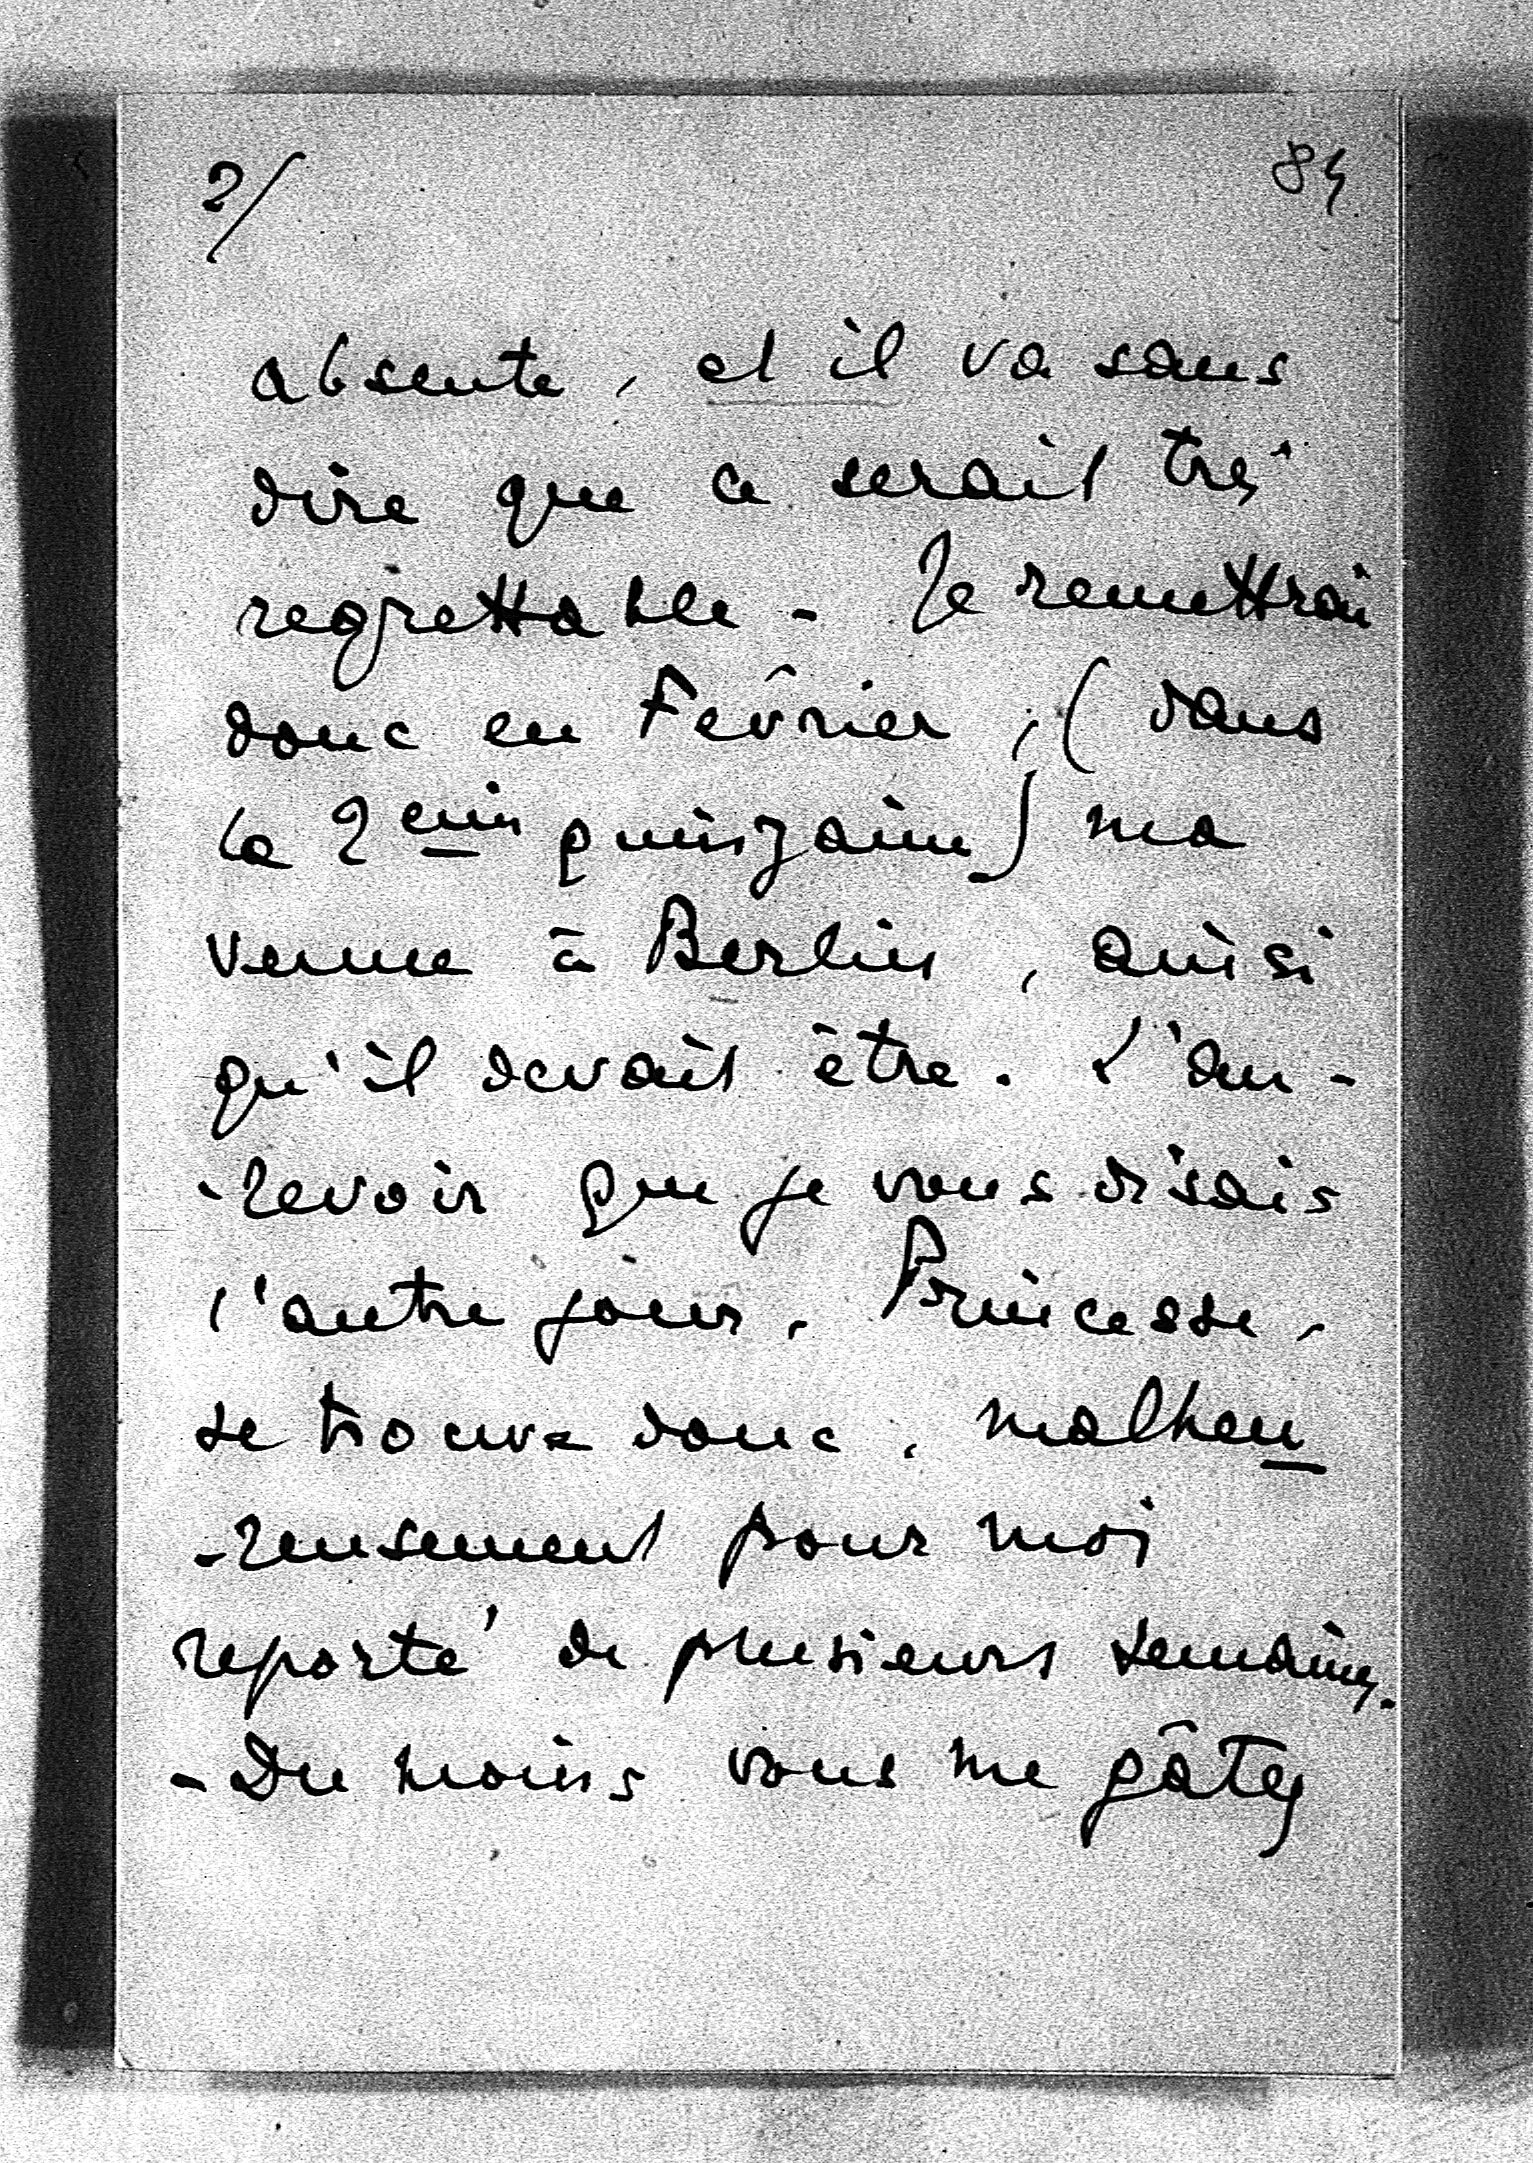 2/ 84
absente, et il va sans
dire que ce serait très
regrettable - Je remettrai
donc en Février, (dans
la 2eme quinzaine) ma
venue à Berlin, ainsi
qu'il devait être. L'au-
-revoir que je vous disais
l'autre jour, Princesse,
se trouve donc, malheu
-reusement pour moi
reporté de plusieurs semaines.
- Du moins vous me gâtez